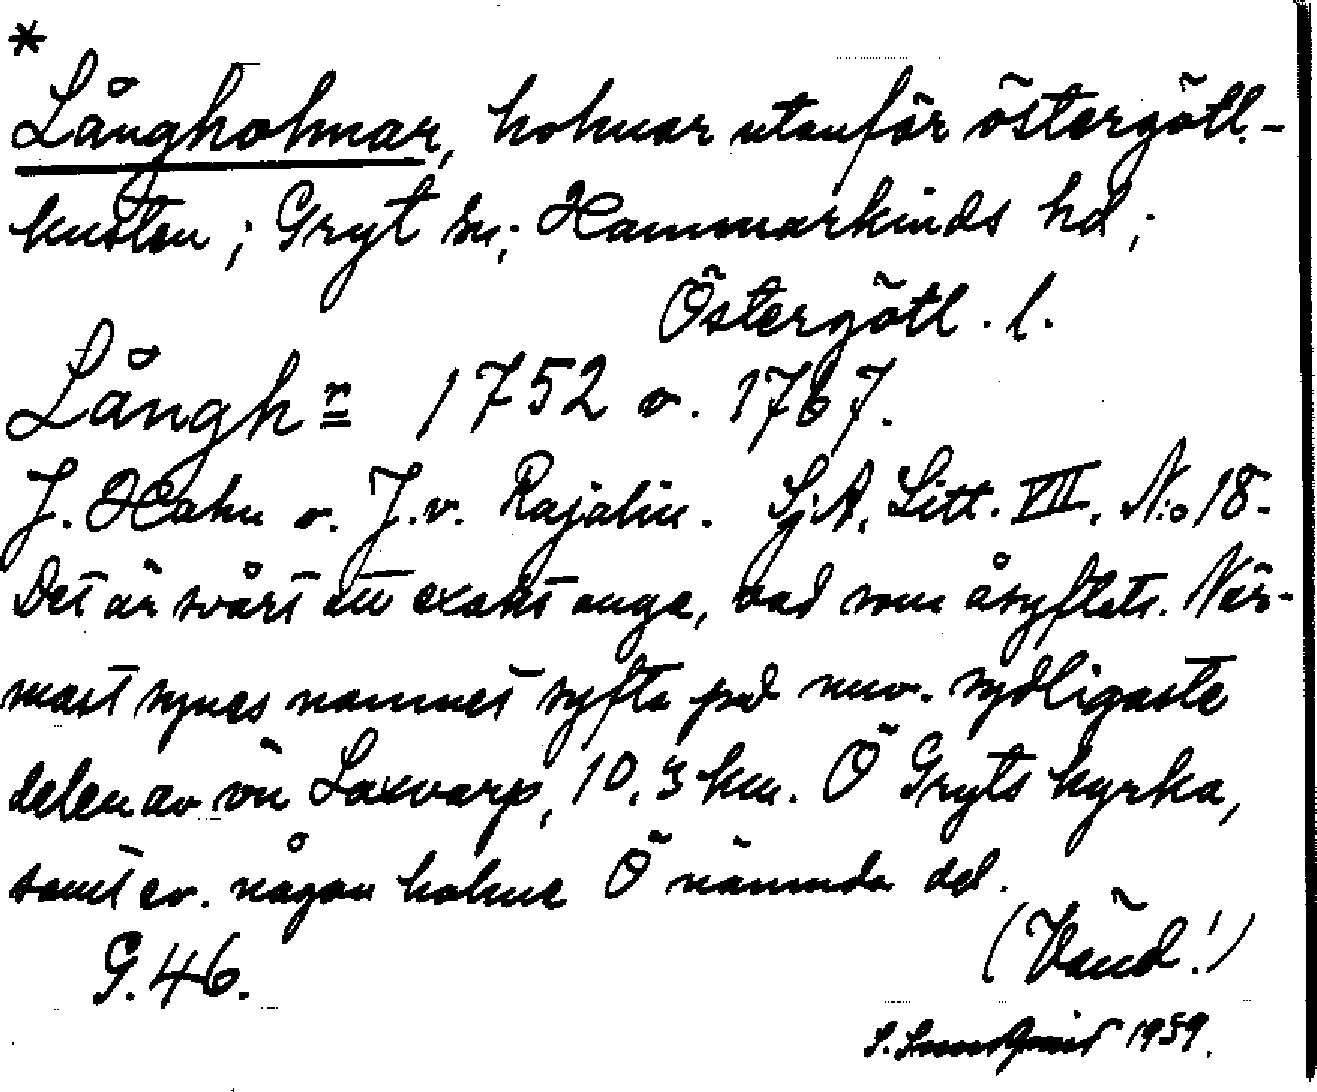 *
Långholmar, holmar utanför östergötl.-
kusten; Gryt sn; Hammarkinds hd;
Östergötl. l.
Långh n 1752 o. 1767.
J. Hahn o. J. v. Rajalin. Sj.A. Litt. VII. N:o 18.
Det är svårt att exakt ange, vad som åsyftats. När-
mast synes namnet syfta på nuv. sydligaste
delen av ön Laxvarp, 10,3 km. Ö Gryts kyrka,
samt ev. någon holme Ö nämnda del.
(Vänd!)
G. 46.
S. 1959.